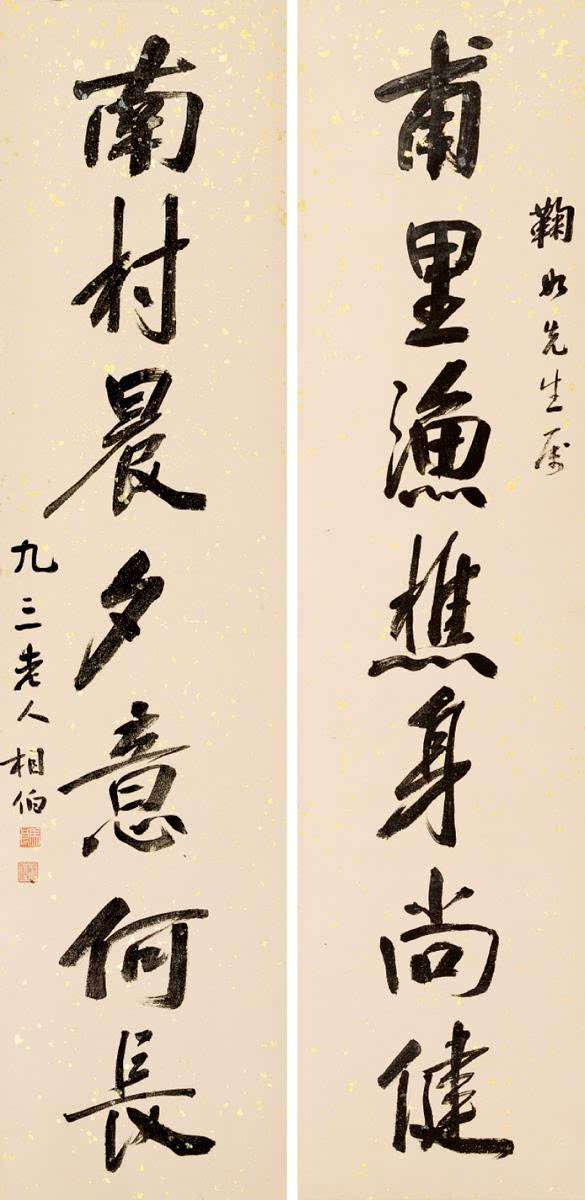 鞠如先生屬
甫里漁樵身尚健
南村晨夕意何長
九三老人相伯